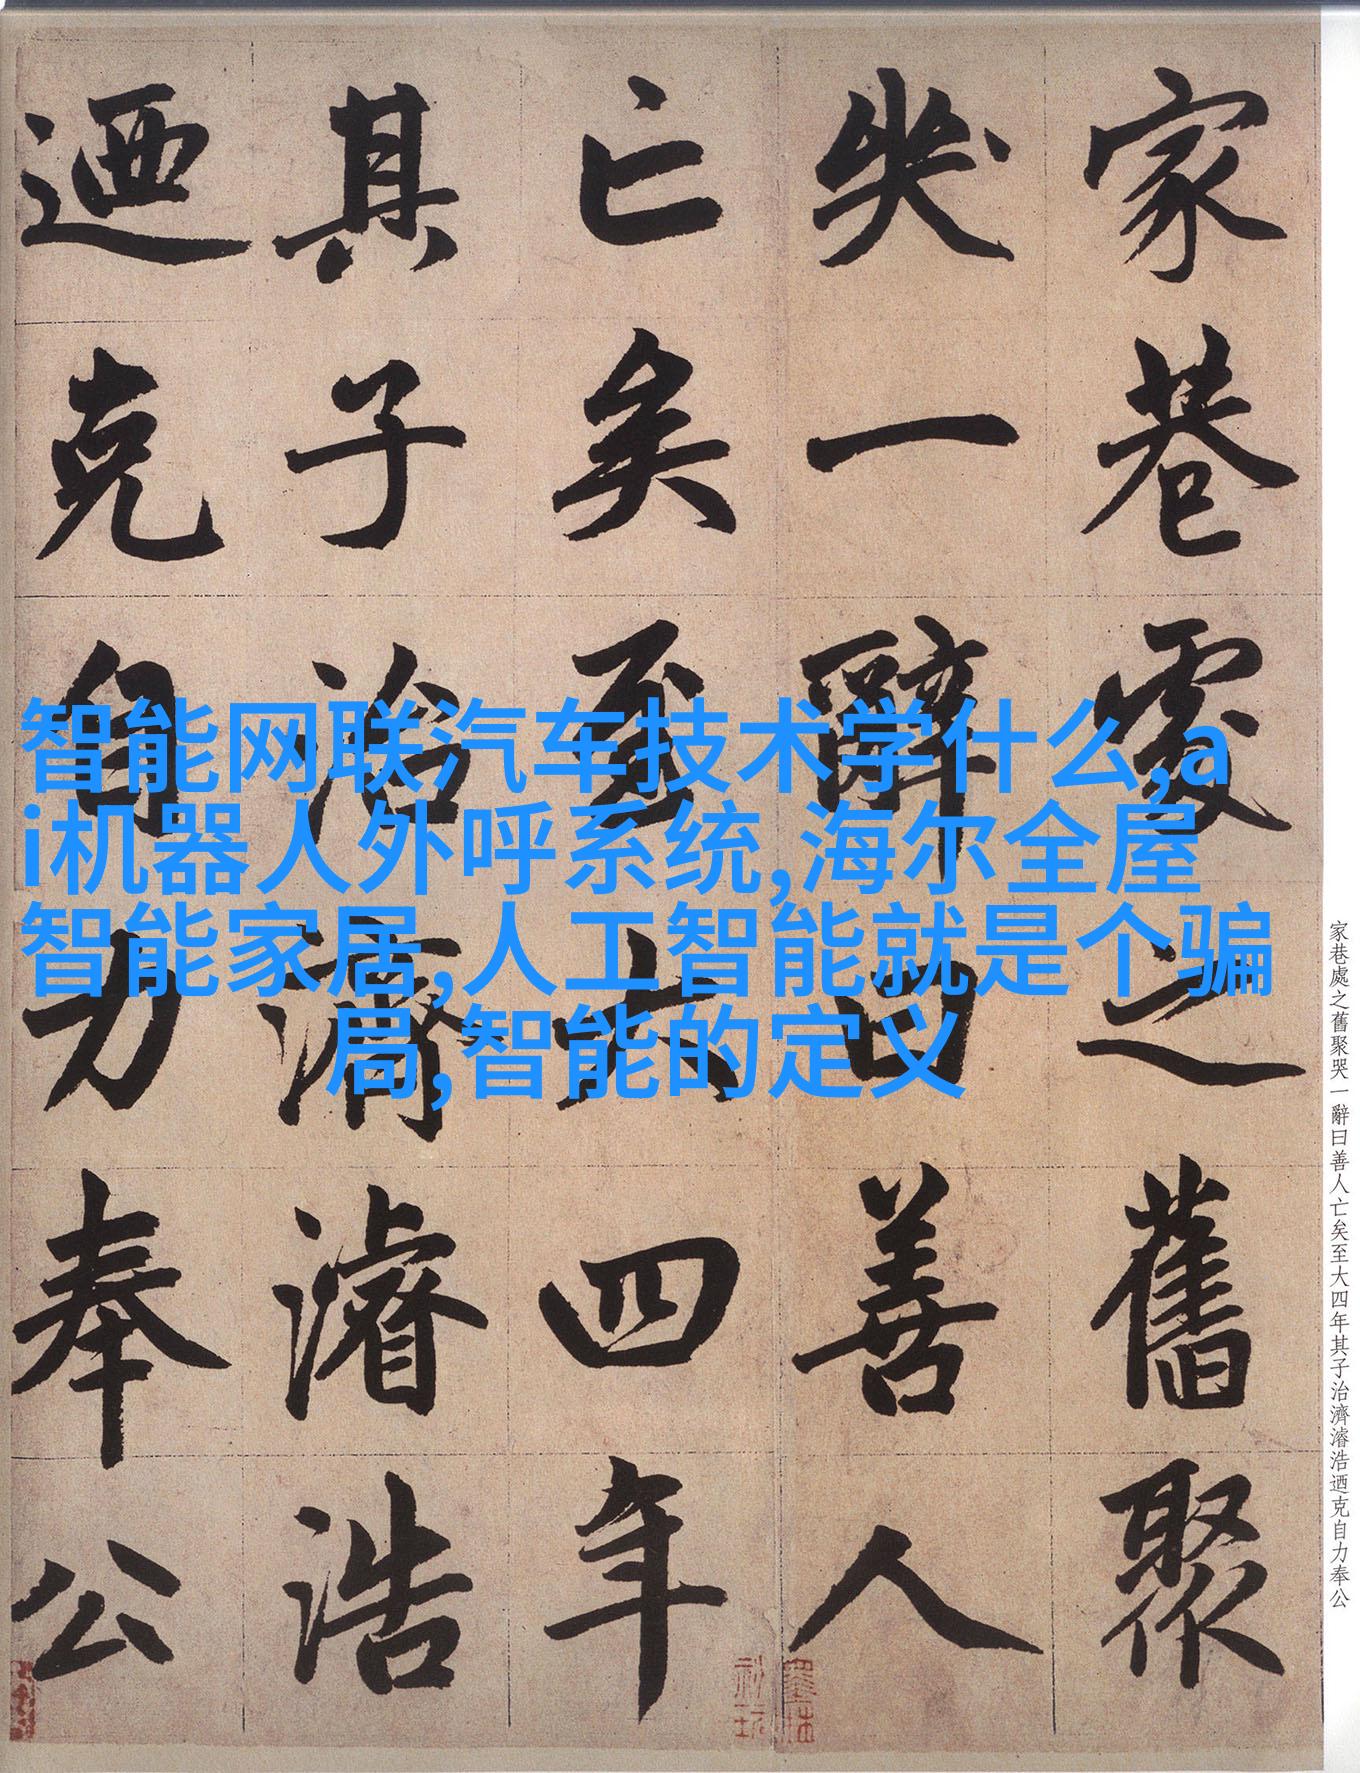 家巷處之舊聚
哭一辭曰善人
亡矣至大四年
其子治濟濬浩
迺克自力奉公
智能网联汽车技术学什么,a
i机器人外呼系统,海尔全屋
智能家居,人工智能就是个骗
局,智能的定义
家巷處之舊聚哭一辭曰善人亡矣至大四年其子治濟濬浩迺克自力奉公